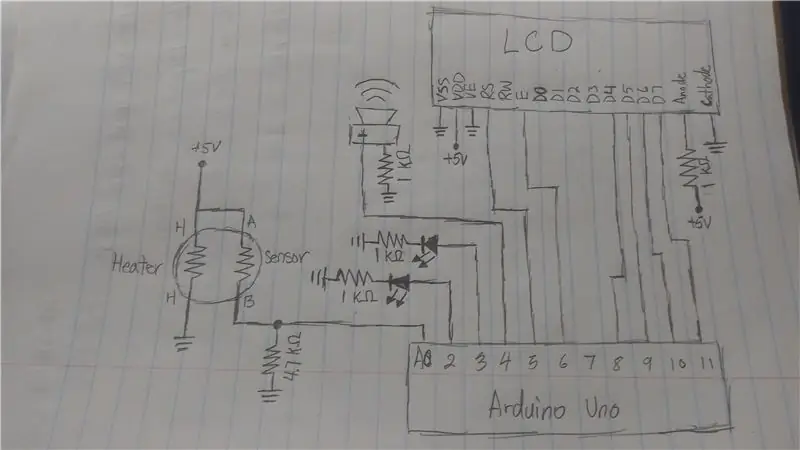 LCD
VSS
VDD
VE
RS
RW
E
D0
D1
D2
D3
D4
D5
D6
D7
Anode
Cathode
+5V
1 KΩ
+5V
+
1 KΩ
+5V
H
A
Heater
Sensor
H
B
4.7 KΩ
1 KΩ
1 KΩ
A0 2 3 4 5 6 7 8 9 10 11
Arduino Uno